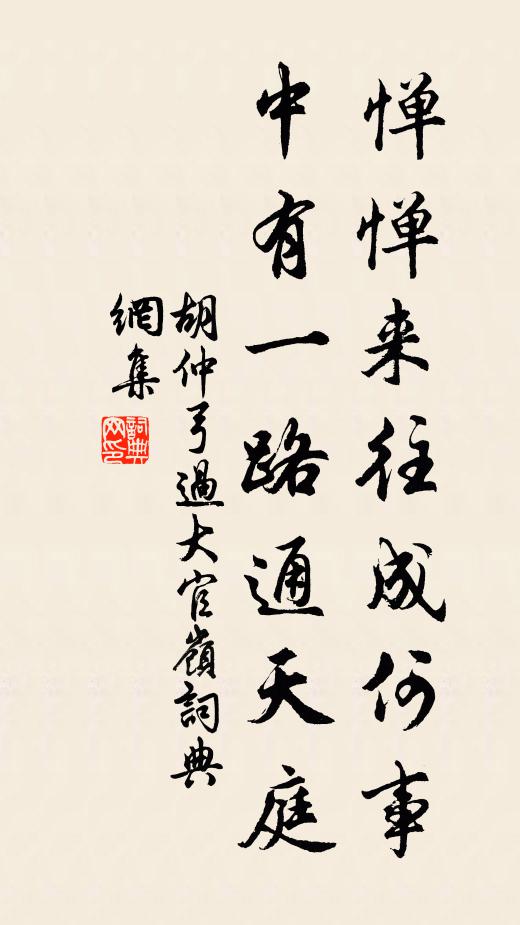 惮惮来往成何事
中有一路通天庭
胡仲弓過大官嶺詞典
網集
詞典
网印